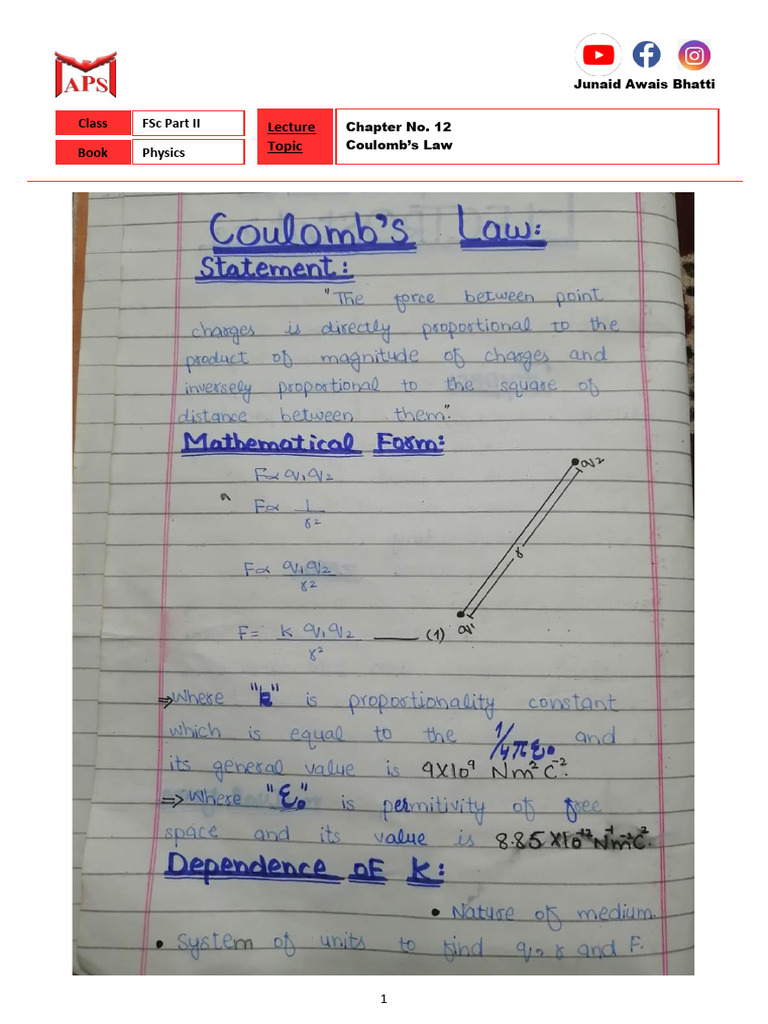 APS
Junaid Awais Bhatti
Class FSc Part II
Book Physics
Lecture Topic
Chapter No. 12
Coulomb's Law
Coulomb's Law:
Statement:
"The force between point
charges is directly proportional to the
product of magnitude of charges and
inversely proportional to the square of
distance between them"
Mathematical Form:
F∝ q₁q₂
F∝ 1/r²
F∝ q₁q₂/r²
F= k q₁q₂/r² (1)
q₂
r
q₁
⇒ Where "k" is proportionality constant
which is equal to the 1/4πε₀ and
its general value is 9×10⁹ Nm²C⁻².
⇒ Where "ε₀" is permitivity of free
space and its value is 8.85×10⁻¹²N⁻¹m⁻²C².
Dependence of K:
• Nature of medium.
• System of units to find q, r and F.
1